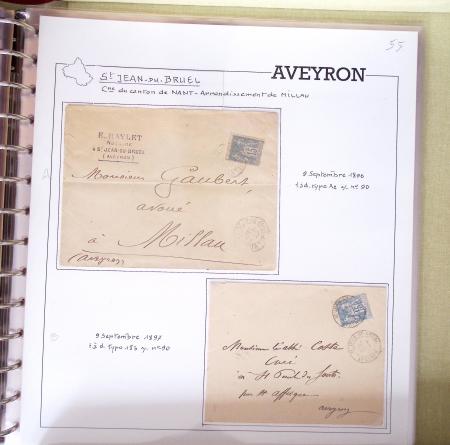 55
St JEAN-DU-BRUEL
AVEYRON
Cne du canton de NANT - Arrondissement de MILLAU
E. RAYLET
NOTAIRE
à St JEAN-DU-BRUEL
(AVEYRON)
Monsieur Gaubert,
avoué
à Millau
(aveyron)
9 Septembre 1890
t.à.d. type
n° 90
9 Septembre 1897
t.à.d. type 18
n° 90
Monsieur l'abbé Coste
Curé
à St
par St Affrique
aveyron